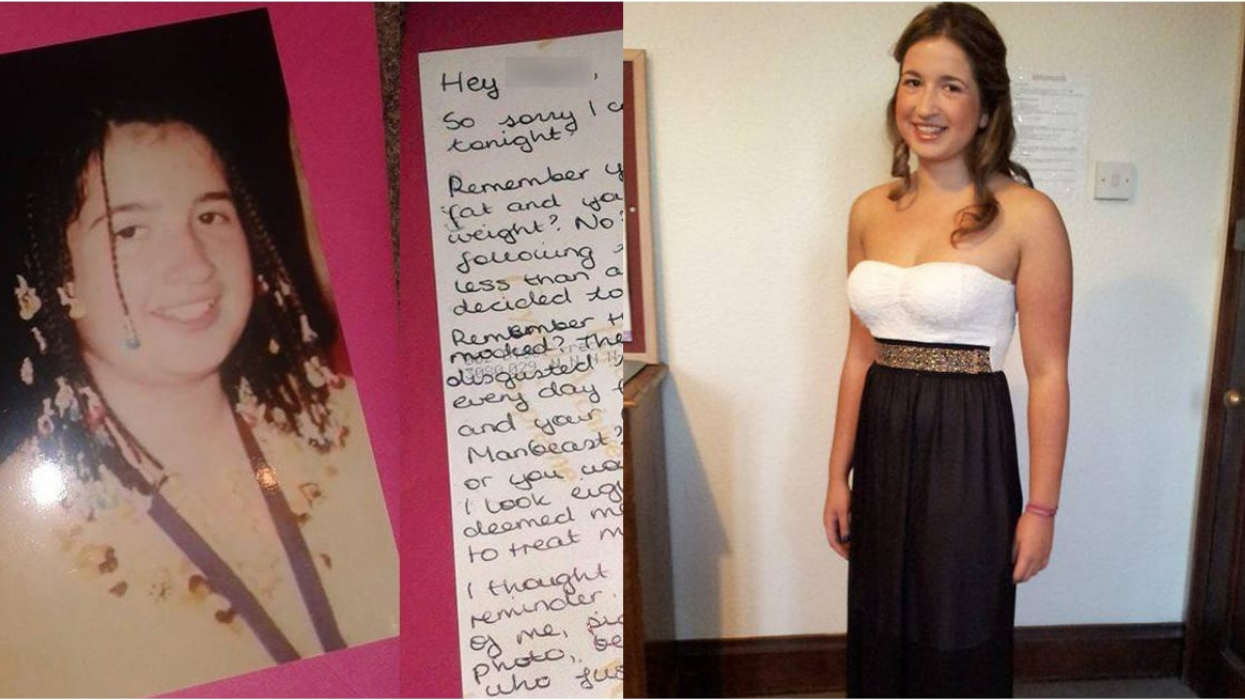 Hey
So sorry I c
tonight,
Remember y
fat and you
weight? No?
following
less than a
decided to
Remember th
mocked? The
disgusted
every day f
and your
Manbeast?
or you wou
I look eig
deemed me
to treat m
I thought
reminder.
of me, pic
Photo, be
who jus